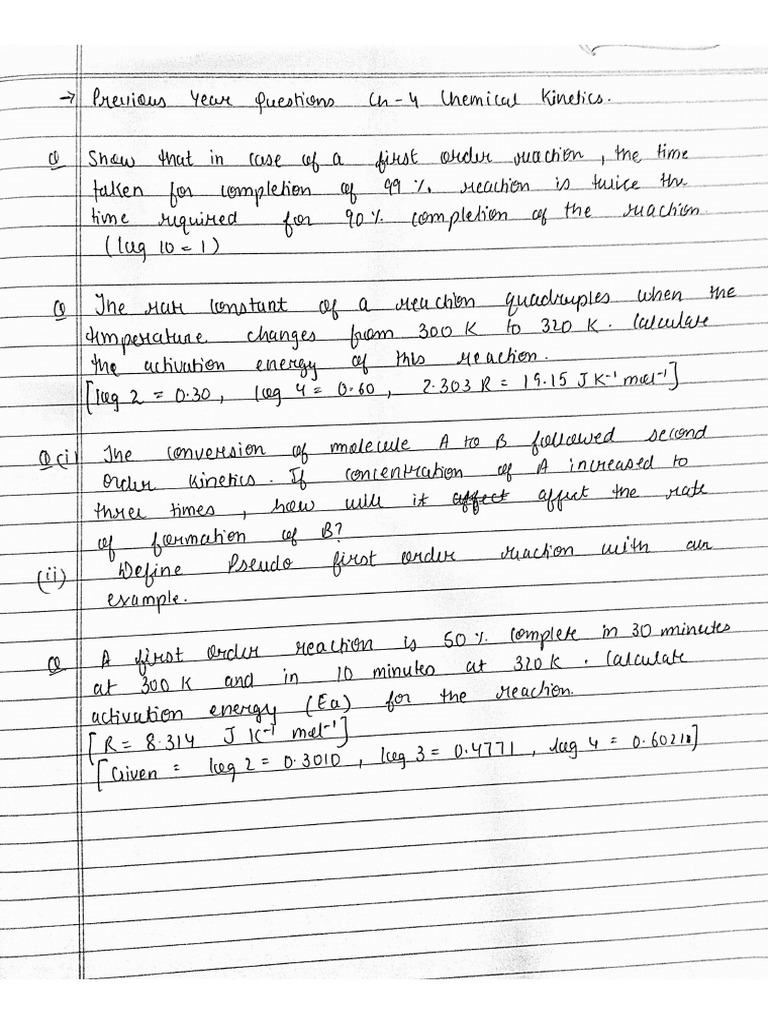 → Previous Year Questions Ch-4 Chemical Kinetics.
Q Show that in case of a first order reaction, the time
taken for completion of 99 % reaction is twice the
time required for 90 % completion of the reaction.
(log 10 = 1)
Q The rate constant of a reaction quadruples when the
temperature changes from 300 K to 320 K. Calculate
the activation energy of this reaction.
[log 2 = 0.30, log 4 = 0.60, 2.303 R = 19.15 J K⁻¹ mol⁻¹]
Q (i) The conversion of molecule A to B followed second
order kinetics. If concentration of A increased to
three times, how will it affect affect the rate
of formation of B?
(ii) Define Pseudo first order reaction with an
example.
Q A first order reaction is 50 % complete in 30 minutes
at 300 K and in 10 minutes at 320 K. Calculate
activation energy (Ea) for the reaction.
[R = 8.314 J K⁻¹ mol⁻¹]
[Given = log 2 = 0.3010, log 3 = 0.4771, log 4 = 0.6021]